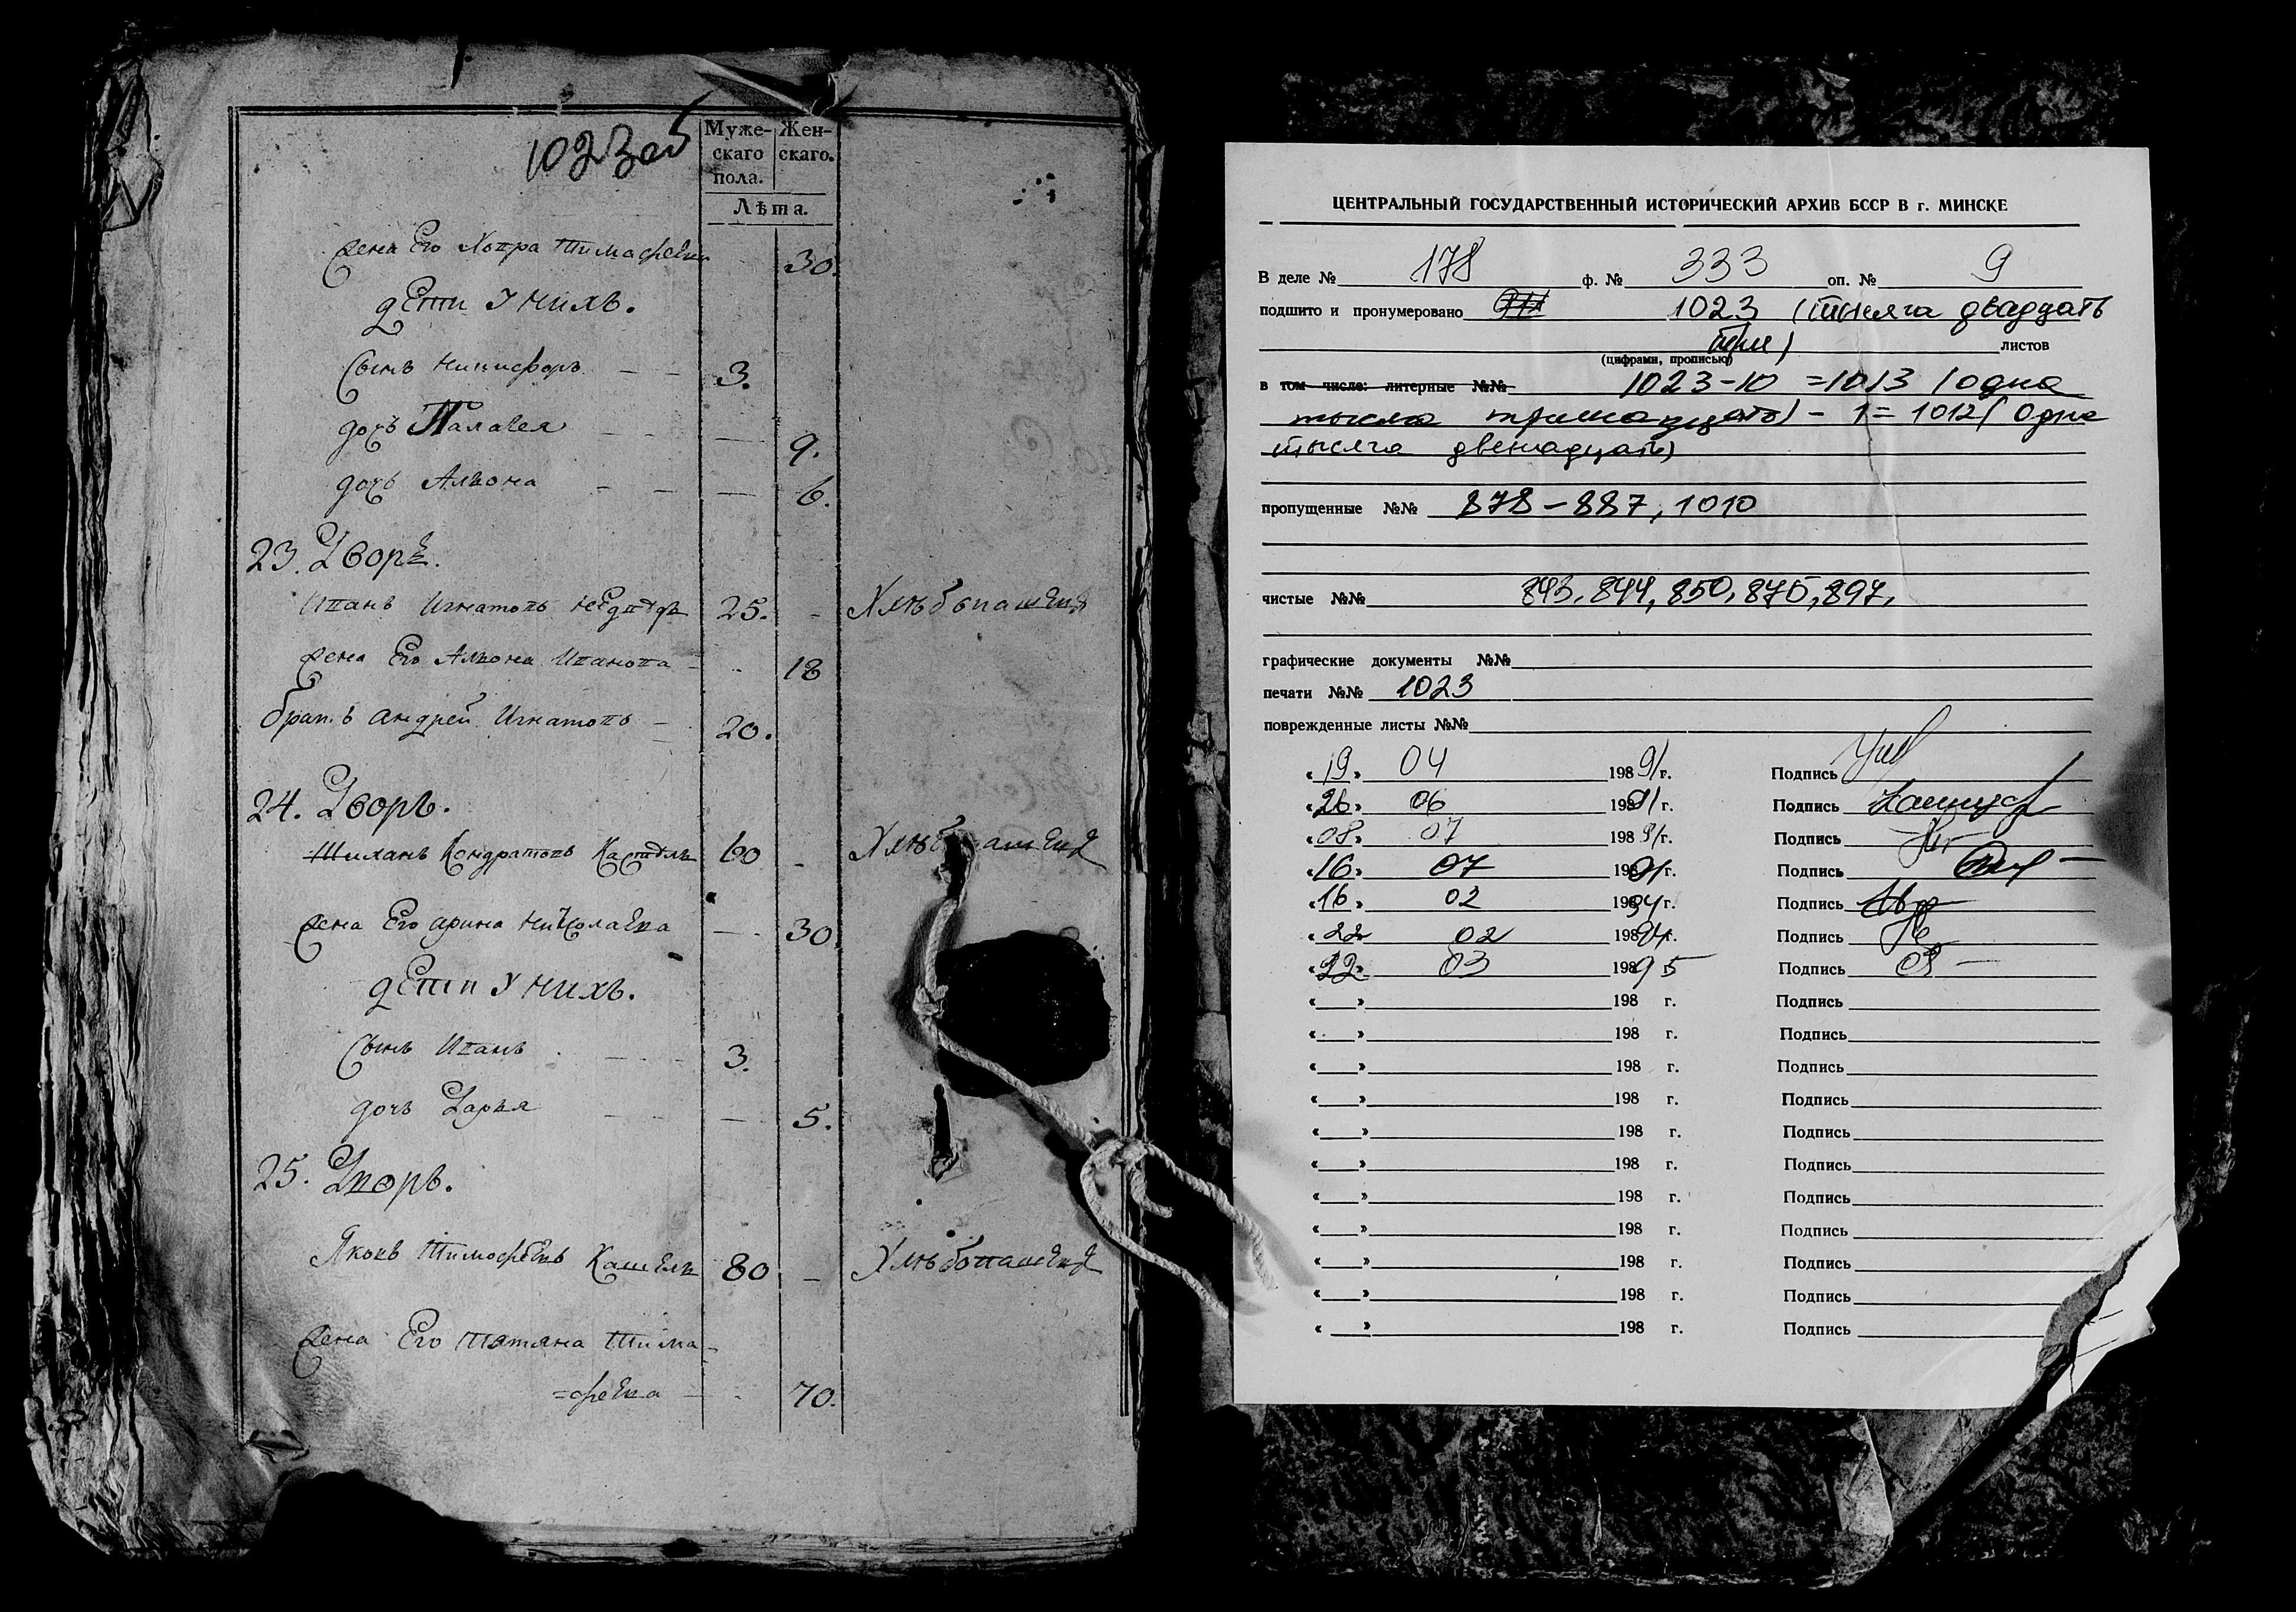 1023 об
Муже-
скаго
пола.
Жен-
скаго.
Лѣта.
жена Его Хопра Тимафеева 30.
дети у нихъ.
Сынъ Никифоръ 3.
дочь Палагея 9.
дочь Алѣона 6.
23. Дворъ.
Иванъ Игнатовъ 25. - Хлѣбопашецъ
жена Его Алѣона Иванова 18
братъ андрей Игнатовъ 20.
24. Дворъ.
Кондратовъ 60 - Хлѣбопашецъ
жена Его арина николаева 30
дети у нихъ.
Сынъ Иванъ 3.
дочь Дарья 5.
25. Дворъ.
Яковъ Тимофѣевъ Кашель 80 - Хлѣбопашецъ
жена Его Татяна Тима-
=феева 70.
ЦЕНТРАЛЬНЫЙ ГОСУДАРСТВЕННЫЙ ИСТОРИЧЕСКИЙ АРХИВ БССР В г. МИНСКЕ
В деле № 178 ф. № 333 оп. № 9
подшито и пронумеровано 1023 (тысяча двадцать
три) листов
(цифрами, прописью)
в том числе: литерные №№ 1023-10 = 1013 (одна
тысяча тринадцать) - 1 = 1012 (одна
тысяча двенадцать)
пропущенные №№ 878-887, 1010
чистые №№ 843, 844, 850, 875, 897,
графические документы №№
печати №№ 1023
поврежденные листы №№
«19» 04 198 91г. Подпись
«26» 06 198 91г. Подпись
«08» 07 198 91г. Подпись
«16» 07 198 91г. Подпись
«16» 02 198 94г. Подпись
«22» 02 198 94г. Подпись
«22» 03 198 95 г. Подпись
«__» 198 г. Подпись
«__» 198 г. Подпись
«__» 198 г. Подпись
«__» 198 г. Подпись
«__» 198 г. Подпись
«__» 198 г. Подпись
«__» 198 г. Подпись
«__» 198 г. Подпись
«__» 198 г. Подпись
«__» 198 г. Подпись
«__» 198 г. Подпись